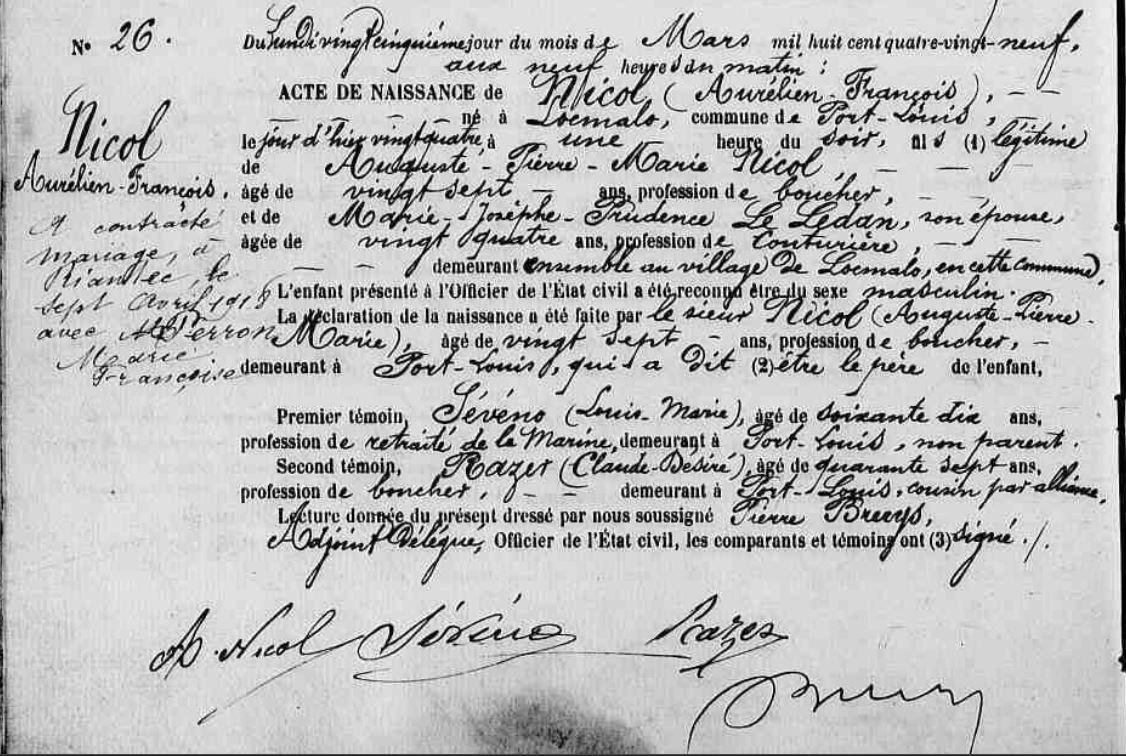 N° 26.
Du lundi vingt cinquième jour du mois de Mars mil huit cent quatre-vingt-neuf,
aux neuf heures du matin :
ACTE DE NAISSANCE de Nicol (Aurélien-François),
né à Locmalo, commune de Port-Louis,
le jour d'hier vingt quatre, à une heure du soir, fils (1) légitime
de Auguste-Pierre-Marie Nicol
âgé de vingt sept ans, profession de boucher,
et de Marie-Josèphe-Prudence Le Lédan, son épouse,
âgée de vingt quatre ans, profession de Couturière,
demeurant ensemble au village de Locmalo, en cette commune,
L'enfant présenté à l'Officier de l'État civil a été reconnu être du sexe masculin.
La déclaration de la naissance a été faite par le sieur Nicol (Auguste-Pierre-
Marie), âgé de vingt sept ans, profession de boucher,
demeurant à Port-Louis, qui a dit (2) être le père de l'enfant,
Premier témoin, Sévéno (Louis-Marie), âgé de soixante dix ans,
profession de retraité de la Marine, demeurant à Port-Louis, non parent.
Second témoin, Razer (Claude-Désiré), âgé de quarante sept ans,
profession de boucher, demeurant à Port-Louis, cousin par alliance.
Lecture donnée du présent dressé par nous soussigné Pierre Breuys,
Adjoint Délégué, Officier de l'État civil, les comparants et témoins ont (3) signé ./.
Nicol
Aurélien-François.
A contracté
mariage, à
Riantec, le
sept Avril 1918
avec Perron
Marie
Françoise
A. Nicol Sévéno Razer